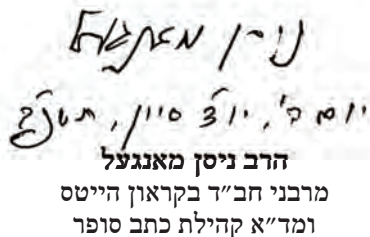 ניסן מאנגעל
יום ה', סיון,
הרב ניסן מאנגעל
מרבני חב״ד בקראון הייטס
ומד״א קהילת כתב סופר